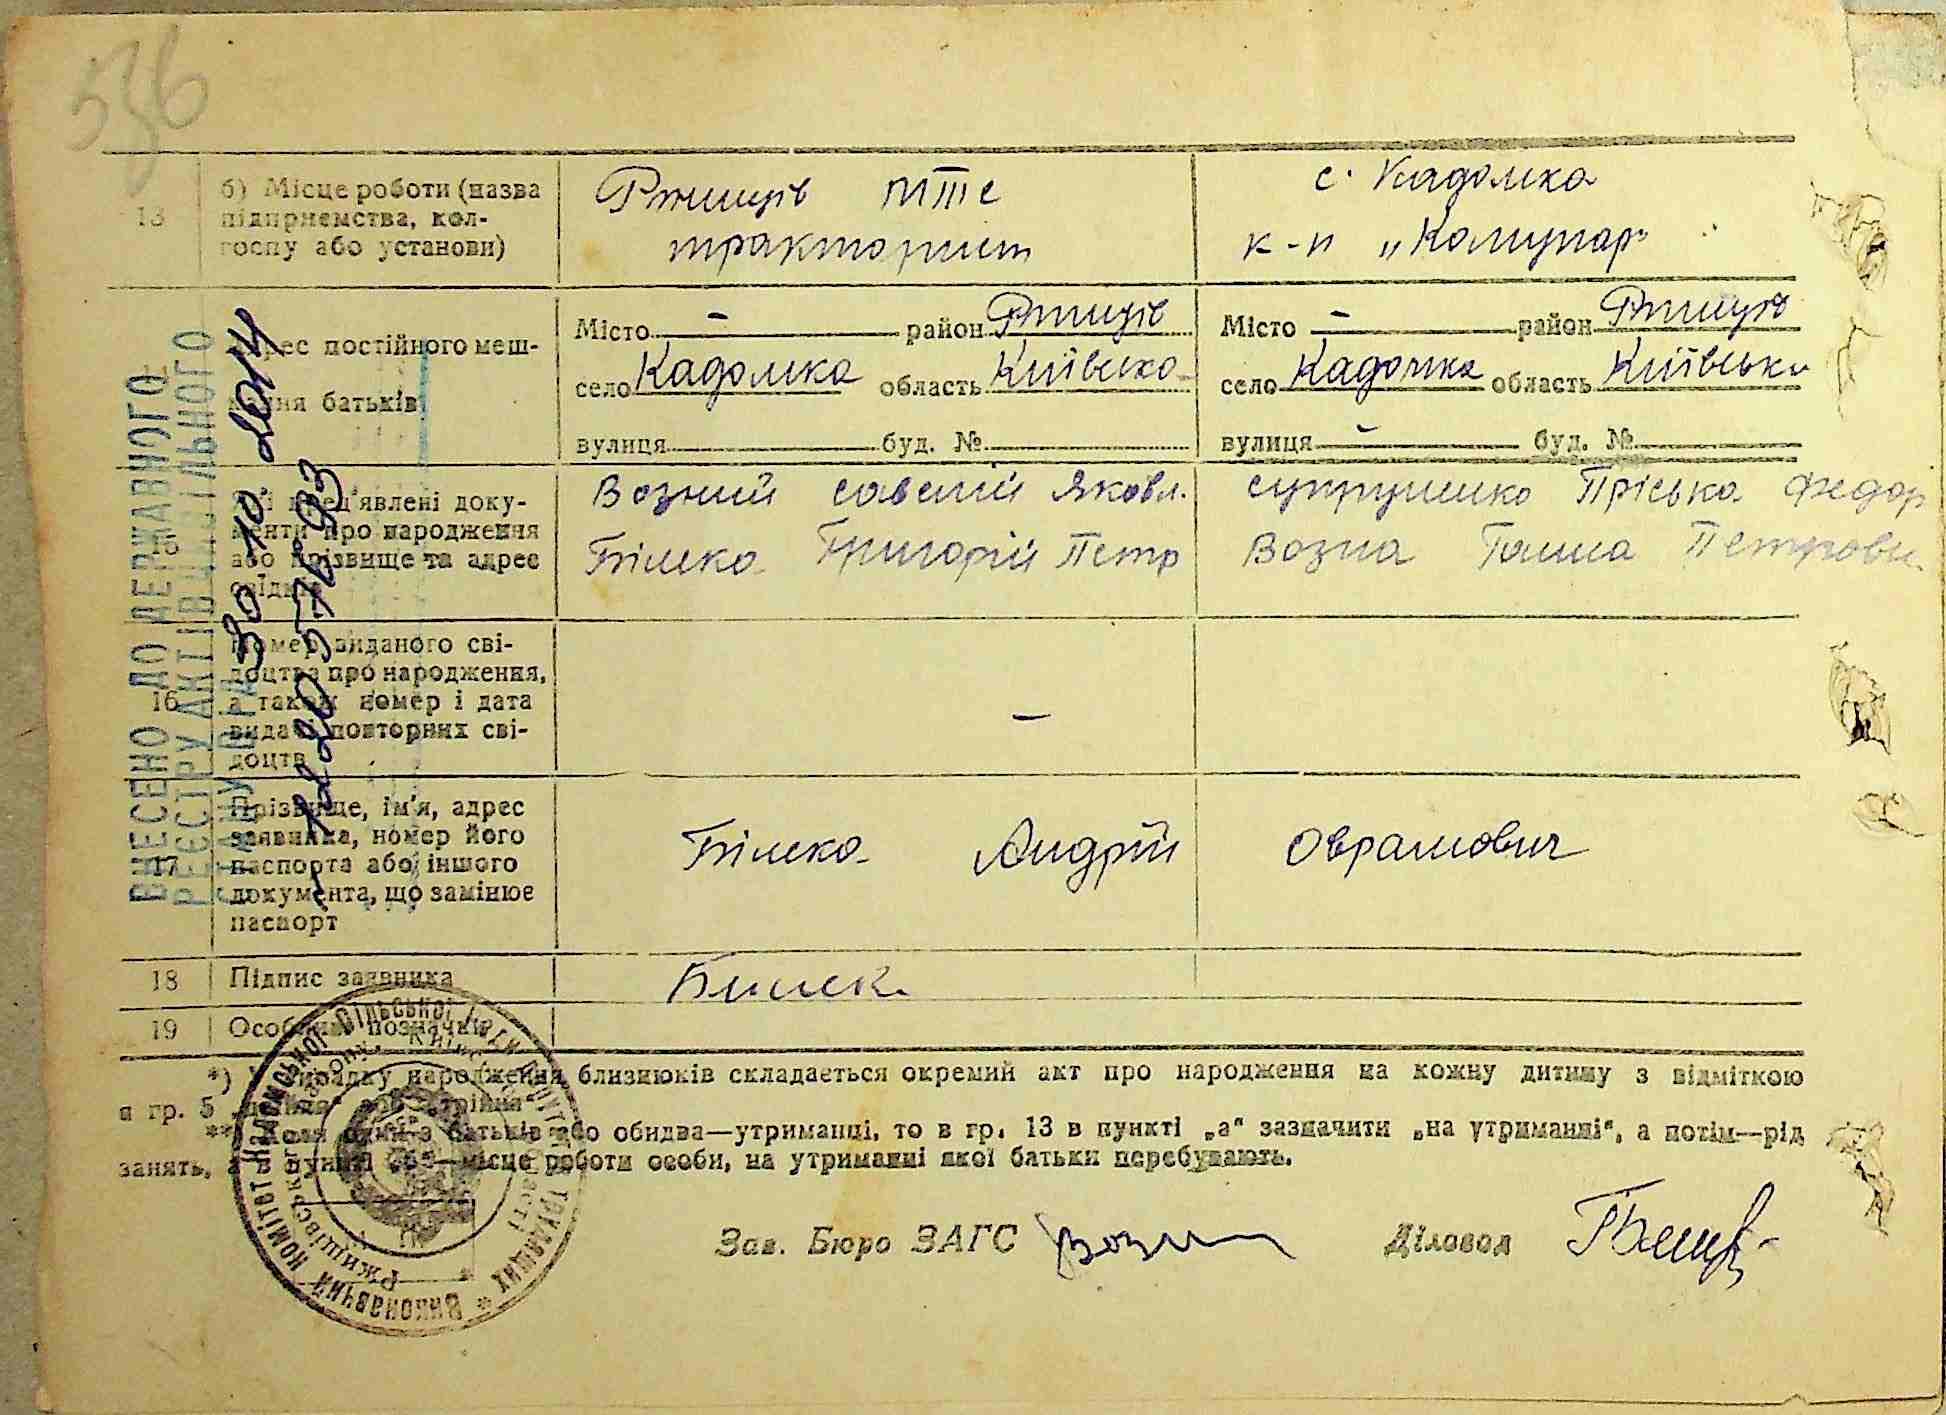 536
13 б) Місце роботи (назва підприємства, колгоспу або установи)
Ржищів МТС
тракторист
с. Кадомка
к-п „Комунар"
Адрес постійного мешкання батьків
Місто – район Ржищів
село Кадомка область Київська
вулиця буд. №
Місто – район Ржищів
село Кадомка область Київська
вулиця – буд. №
Які пред'явлені документи про народження або прізвище та адрес свідків
Возний Савелій Яковл.
Білека Григорій Петр
Супруненко Пріська Федор
Возна Галина Петровн.
16 Номер виданого свідоцтва про народження, а також номер і дата видачі повторних свідоцтв
–
17 Прізвище, ім'я, адрес заявника, номер його паспорта або іншого документа, що замінює паспорт
Білека Андрій Оврамович
18 Підпис заявника
19 Особливі позначки
*) У випадку народження близнюків складається окремий акт про народження на кожну дитину з відміткою
в гр. 5 „двійня" або „трійня"
** Коли один з батьків або обидва—утриманці, то в гр. 13 в пункті „а" зазначити „на утриманні", а потім—рід
занять, а в пункті „б"—місце роботи особи, на утриманні якої батьки перебувають.
Зав. Бюро ЗАГС
Діловод
ВНЕСЕНО ДО ДЕРЖАВНОГО
РЕЄСТРУ АКТІВ ЦИВІЛЬНОГО
СТАНУ
30 10 2014
Виконавчий комітет Кадомської сільської Ради депутатів трудящих
Ржищівського району, Київської області